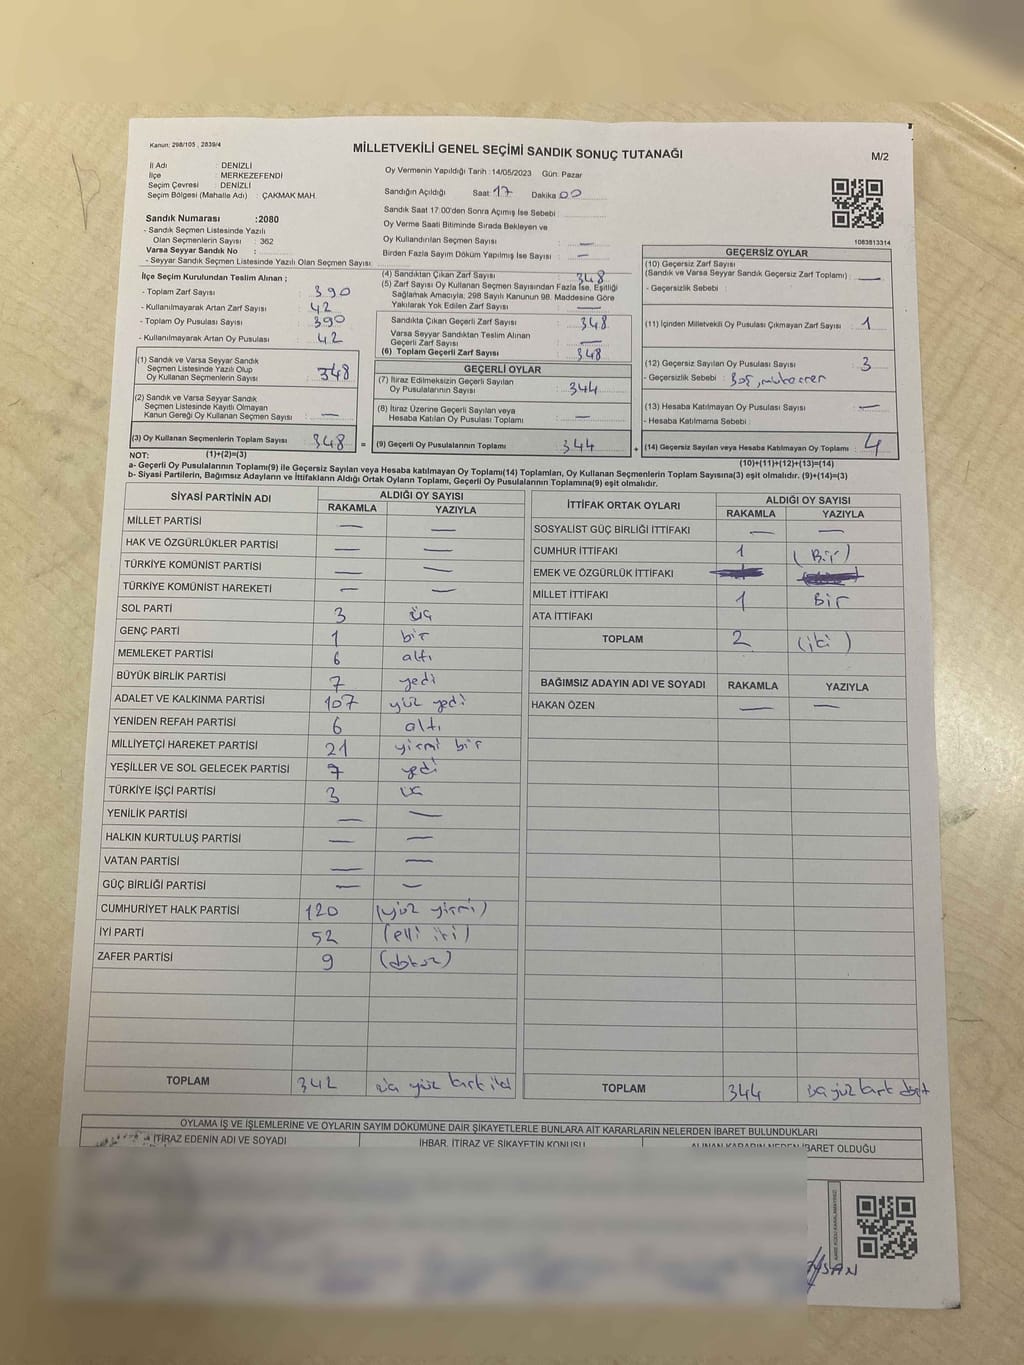 Kanun; 298/105 , 2839/4
MİLLETVEKİLİ GENEL SEÇİMİ SANDIK SONUÇ TUTANAĞI
M/2
İl Adı : DENİZLİ
İlçe : MERKEZEFENDİ
Seçim Çevresi : DENİZLİ
Seçim Bölgesi (Mahalle Adı) : ÇAKMAK MAH.
Oy Vermenin Yapıldığı Tarih : 14/05/2023 Gün: Pazar
Sandığın Açıldığı Saat: 17 Dakika 00
Sandık Saat 17.00'den Sonra Açımış İse Sebebi
Oy Verme Saati Bitiminde Sırada Bekleyen ve
Oy Kullandırılan Seçmen Sayısı : —
Birden Fazla Sayım Döküm Yapılmış İse Sayısı : —
1083813314
Sandık Numarası :2080
- Sandık Seçmen Listesinde Yazılı
Olan Seçmenlerin Sayısı : 362
Varsa Seyyar Sandık No :
- Seyyar Sandık Seçmen Listesinde Yazılı Olan Seçmen Sayısı:
İlçe Seçim Kurulundan Teslim Alınan ;
- Toplam Zarf Sayısı : 390
- Kullanılmayarak Artan Zarf Sayısı : 42
- Toplam Oy Pusulası Sayısı : 390
- Kullanılmayarak Artan Oy Pusulası : 42
(1) Sandık ve Varsa Seyyar Sandık
Seçmen Listesinde Yazılı Olup
Oy Kullanan Seçmenlerin Sayısı : 348
(2) Sandık ve Varsa Seyyar Sandık
Seçmen Listesinde Kayıtlı Olmayan
Kanun Gereği Oy Kullanan Seçmen Sayısı : —
(3) Oy Kullanan Seçmenlerin Toplam Sayısı : 348 =
(4) Sandıktan Çıkan Zarf Sayısı : 348
(5) Zarf Sayısı Oy Kullanan Seçmen Sayısından Fazla İse, Eşitliği
Sağlamak Amacıyla, 298 Sayılı Kanunun 98. Maddesine Göre
Yakılarak Yok Edilen Zarf Sayısı : —
Sandıkta Çıkan Geçerli Zarf Sayısı : 348
Varsa Seyyar Sandıktan Teslim Alınan
Geçerli Zarf Sayısı : —
(6) Toplam Geçerli Zarf Sayısı : 348
GEÇERLİ OYLAR
(7) İtiraz Edilmeksizin Geçerli Sayılan
Oy Pusulalarının Sayısı : 344
(8) İtiraz Üzerine Geçerli Sayılan veya
Hesaba Katılan Oy Pusulası Toplamı : —
(9) Geçerli Oy Pusulalarının Toplamı : 344 +
GEÇERSİZ OYLAR
(10) Geçersiz Zarf Sayısı
(Sandık ve Varsa Seyyar Sandık Geçersiz Zarf Toplamı) : —
- Geçersizlik Sebebi :
(11) İçinden Milletvekili Oy Pusulası Çıkmayan Zarf Sayısı : 1
(12) Geçersiz Sayılan Oy Pusulası Sayısı : 3
- Geçersizlik Sebebi : Boş,
(13) Hesaba Katılmayan Oy Pusulası Sayısı : —
- Hesaba Katılmama Sebebi :
(14) Geçersiz Sayılan veya Hesaba Katılmayan Oy Toplamı : 4
NOT: (1)+(2)=(3)
(10)+(11)+(12)+(13)=(14)
a- Geçerli Oy Pusulalarının Toplamı(9) ile Geçersiz Sayılan veya Hesaba katılmayan Oy Toplamı(14) Toplamları, Oy Kullanan Seçmenlerin Toplam Sayısına(3) eşit olmalıdır. (9)+(14)=(3)
b- Siyasi Partilerin, Bağımsız Adayların ve İttifakların Aldığı Ortak Oyların Toplamı, Geçerli Oy Pusulalarının Toplamına(9) eşit olmalıdır.
SİYASİ PARTİNİN ADI ALDIĞI OY SAYISI
RAKAMLA YAZIYLA
MİLLET PARTİSİ — —
HAK VE ÖZGÜRLÜKLER PARTİSİ — —
TÜRKİYE KOMÜNİST PARTİSİ — —
TÜRKİYE KOMÜNİST HAREKETİ — —
SOL PARTİ 3 üç
GENÇ PARTİ 1 bir
MEMLEKET PARTİSİ 6 altı
BÜYÜK BİRLİK PARTİSİ 7 yedi
ADALET VE KALKINMA PARTİSİ 107 yüz yedi
YENİDEN REFAH PARTİSİ 6 altı
MİLLİYETÇİ HAREKET PARTİSİ 21 yirmi bir
YEŞİLLER VE SOL GELECEK PARTİSİ 7 yedi
TÜRKİYE İŞÇİ PARTİSİ 3 üç
YENİLİK PARTİSİ — —
HALKIN KURTULUŞ PARTİSİ — —
VATAN PARTİSİ — —
GÜÇ BİRLİĞİ PARTİSİ — —
CUMHURİYET HALK PARTİSİ 120 (yüz yirmi)
İYİ PARTİ 52 (elli iki)
ZAFER PARTİSİ 9 (dokuz)
TOPLAM 342 üç yüz kırk iki
İTTİFAK ORTAK OYLARI ALDIĞI OY SAYISI
RAKAMLA YAZIYLA
SOSYALİST GÜÇ BİRLİĞİ İTTİFAKI — —
CUMHUR İTTİFAKI 1 (Bir)
EMEK VE ÖZGÜRLÜK İTTİFAKI
MİLLET İTTİFAKI 1 Bir
ATA İTTİFAKI
TOPLAM 2 (iki)
BAĞIMSIZ ADAYIN ADI VE SOYADI RAKAMLA YAZIYLA
HAKAN ÖZEN — —
TOPLAM 344 üç yüz kırk dört
OYLAMA İŞ VE İŞLEMLERİNE VE OYLARIN SAYIM DÖKÜMÜNE DAİR ŞİKAYETLERLE BUNLARA AİT KARARLARIN NELERDEN İBARET BULUNDUKLARI
İTİRAZ EDENİN ADI VE SOYADI İHBAR, İTİRAZ VE ŞİKAYETİN KONUSU ALINAN KARARIN NEDEN İBARET OLDUĞU